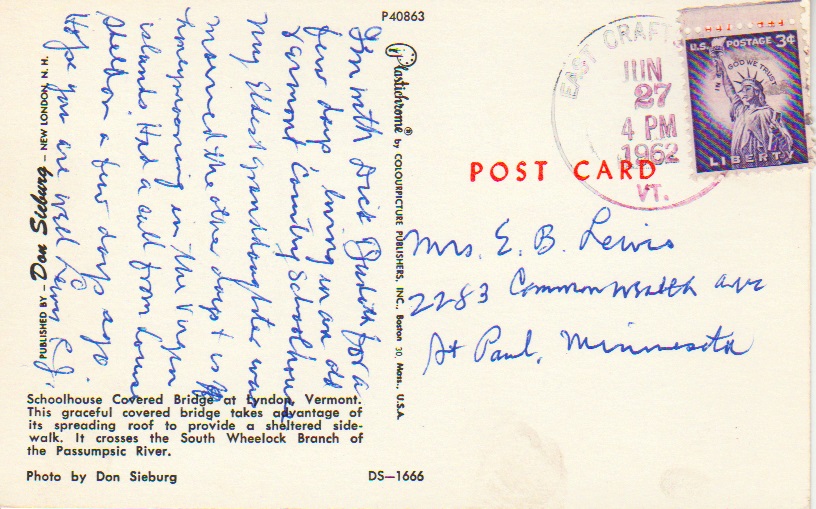 P40863
EAST CRAFTS
JUN
27
4 PM
1962
VT.
U.S. POSTAGE 3¢
IN GOD WE TRUST
LIBERTY
POST CARD
Mrs. E. B. Lewis
2283 Commonwealth ave
St Paul, Minnesota
I'm with Dick Judith for a
few days living in an old
Varmont Country Schoolhouse
My Eldest granddaughter was
married the other day & is
honeymooning in the Virgin
islands. Had a call from Louise
Shelton a few days ago.
Hope you are well Lewis E.J.
Plastichrome® by COLOURPICTURE PUBLISHERS, INC., Boston 30, Mass., U.S.A.
PUBLISHED BY – Don Sieburg – NEW LONDON, N. H.
Schoolhouse Covered Bridge at Lyndon, Vermont.
This graceful covered bridge takes advantage of
its spreading roof to provide a sheltered side-
walk. It crosses the South Wheelock Branch of
the Passumpsic River.
Photo by Don Sieburg
DS–1666